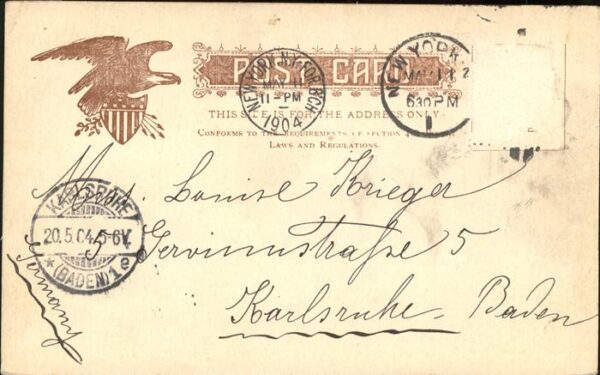 POST CARD
THIS SIDE IS FOR THE ADDRESS ONLY
CONFORMS TO THE REQUIREMENTS OF SECTION
LAWS AND REGULATIONS.
NEW YORK, N.Y. FOR. RCH
MAY 11
11-PM
1904
NEW YORK
MAY 11
630PM
Louise Krieger
Gervinusstraße 5
Karlsruhe Baden
Germany
KARLSRUHE
20.5.04.5-6V.
(BADEN) 1